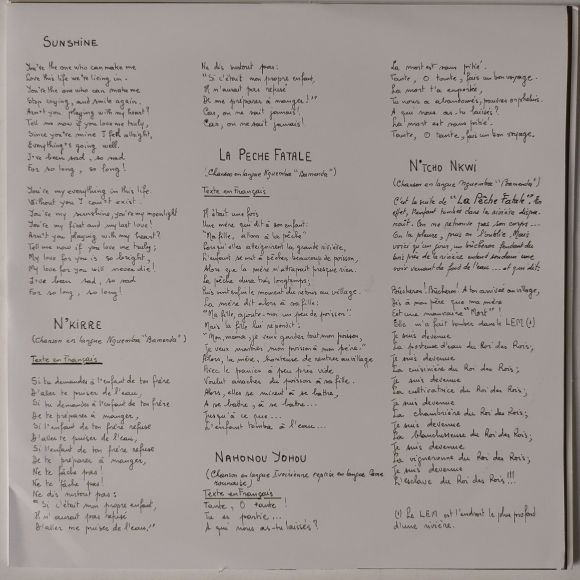 SUNSHINE
You're the one who can make me
Love this life we're living in.
You're the one who can make me
Stop crying, and smile again.
Aren't you playing with my heart?
Tell me now if you love me truly,
Since you're mine I feel allright,
Everything's going well.
I've been sad, so sad
For so long, so long!
You're my everything in this life
Without you I can't exist.
You're my sunshine, you're my moonlight
You're my first and my last love!
Aren't you playing with my heart?
Tell me now if you love me truly;
My love for you is so bright,
My love for you will never die!
I've been sad, so sad
For so long, so long!
N'KIRRE
(Chanson en langue Nguemba "Bamenda")
Texte en Français
Si tu demandes à l'enfant de ton frère
D'aller te puiser de l'eau,
Si tu demandes à l'enfant de ton frère
De te préparer à manger,
Si l'enfant de ton frère refuse
D'aller te puiser de l'eau,
Si l'enfant de ton frère refuse
De te préparer à manger,
Ne te fâche pas!
Ne te fâche pas!
Ne dis surtout pas:
"Si c'était mon propre enfant,
Il n'aurait pas refusé
D'aller me puiser de l'eau,"
Ne dis surtout pas:
"Si c'était mon propre enfant,
Il n'aurait pas refusé
De me préparer à manger!"
Car, on ne sait jamais!
Car, on ne sait jamais!
LA PECHE FATALE
(Chanson en langue Nguemba "Bamenda")
Texte en Français
Il était une fois
Une mère qui dit à son enfant:
"Ma fille, allons à la pêche"
Lorsqu'elles atteignirent la grande rivière,
L'enfant se mit à pêcher beaucoup de poisson,
Alors que la mère n'attrapait presque rien.
La pêche dura très longtemps;
Puis vint enfin le moment du retour au village.
La mère dit alors à sa fille:
"Ma fille, ajoute-moi un peu de poisson".
Mais la fille lui répondit:
"Non, maman, je veux garder tout mon poisson,
Je veux montrer mon poisson à mon père."
Alors, la mère, honteuse de rentrer au village
Avec le panier à peu près vide
Voulut arracher du poisson à sa fille.
Alors, elles se mirent à se battre,
A se battre, à se battre...
Jusqu'à ce que...
L'enfant tomba à l'eau...
NAHONOU YOHOU
(Chanson en langue Ivoirienne reprise en langue Came
rounaise)
Texte en Français
Tante, O tante!
Tu es partie...
A qui nous as-tu laissés?
La mort est sans pitié.
Tante, O tante, fais un bon voyage.
La mort t'a emportée,
Tu nous a abandonnés, pauvres orphelins.
A qui nous as-tu laissés?
La mort est sans pitié.
Tante, O tante, fais un bon voyage.
N'TCHO NKWI
(Chanson en langue Nguemba "Bamenda")
C'est la suite de "La Pêche Fatale". En
effet, l'enfant tombée dans la rivière dispa-
raît. On ne retrouve pas son corps...
On la pleure, puis on l'oublie. Mais
voici qu'un jour, un bûcheron fendant du
bois près de la rivière entend soudain une
voix venant du fond de l'eau... et qui dit:
Bûcheron! Bûcheron! A ton arrivée au village,
Dis à mon père que ma mère
Est une mauvaise "Mort"!
Elle m'a fait tomber dans le LEM (1)
Je suis devenue
La porteuse d'eau du Roi des Rois;
Je suis devenue
La cuisinière du Roi des Rois;
Je suis devenue
La cultivatrice du Roi des Rois;
Je suis devenue
La chambrière du Roi des Rois;
Je suis devenue
La blanchisseuse du Roi des Rois;
Je suis devenue
La vigneronne du Roi des Rois;
Je suis devenue
L'esclave du Roi des Rois!!!
(1) Le LEM est l'endroit le plus profond
d'une rivière.